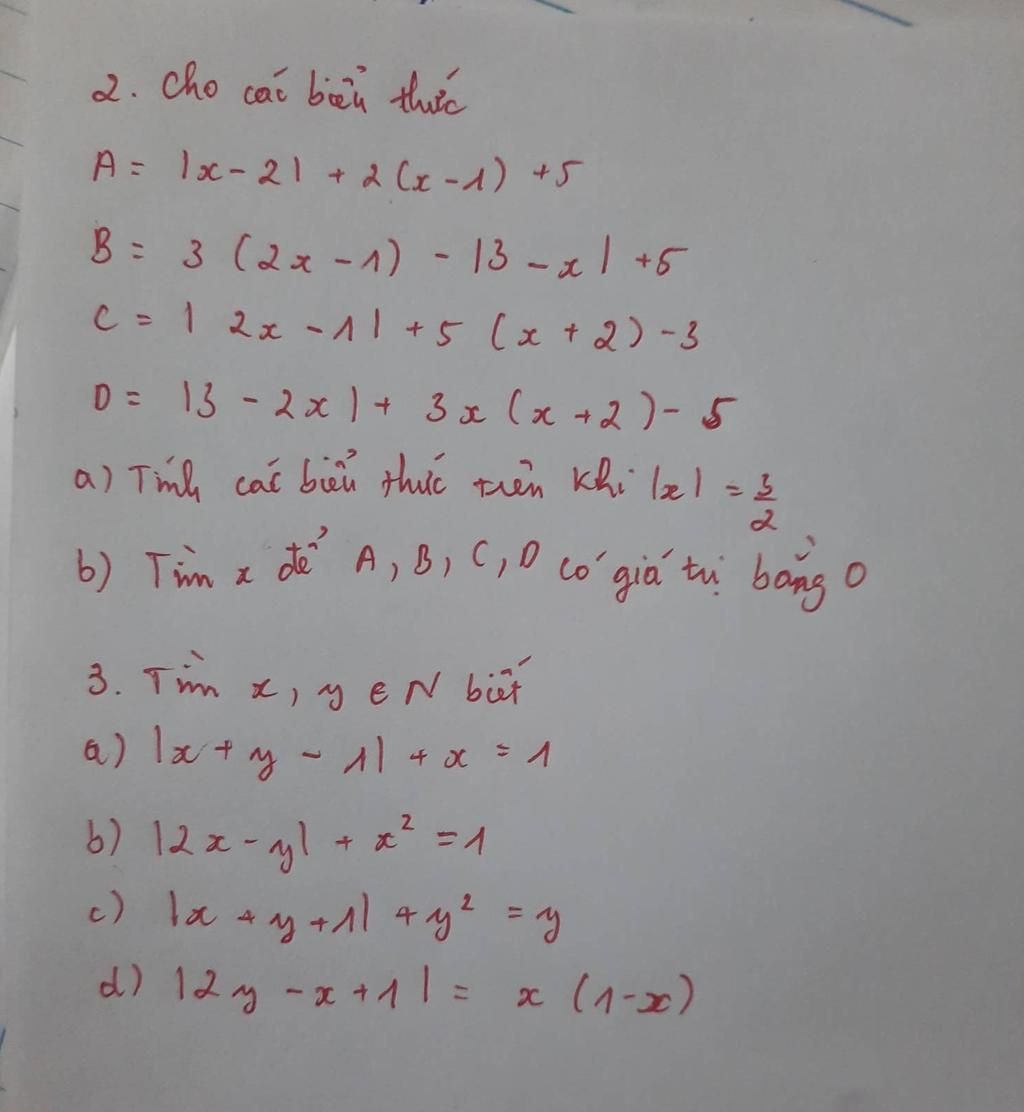 2. Cho các biểu thức
A = |x - 2| + 2(x - 1) + 5
B = 3 (2x - 1) - |3 - x| + 5
C = | 2x - 1| + 5 (x + 2) - 3
D = |3 - 2x| + 3x (x + 2) - 5
a) Tính các biểu thức trên khi |x| = 3/2
b) Tìm x để A, B, C, D có giá trị bằng 0
3. Tìm x, y ∈ N biết
a) |x + y - 1| + x = 1
b) |2x - y| + x² = 1
c) |x + y + 1| + y² = y
d) |2y - x + 1| = x (1-x)